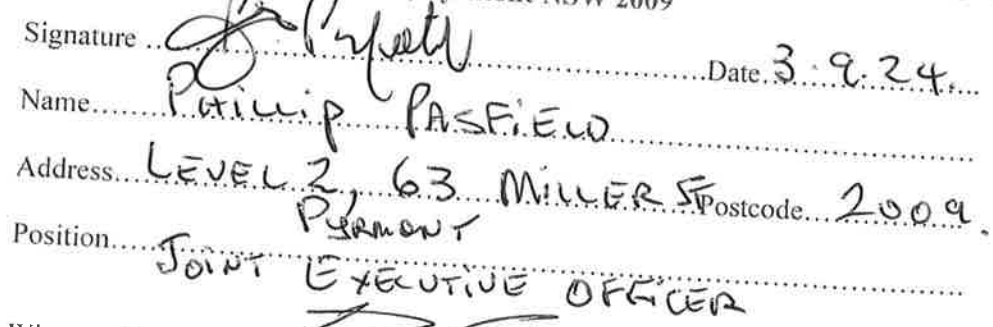 NSW 2009
Signature Date 3.9.24.
Name PHILLIP PASFIELD
Address LEVEL 2, 63 MILLER ST Postcode 2009.
PYRMONT
Position
JOINT EXECUTIVE OFFICER